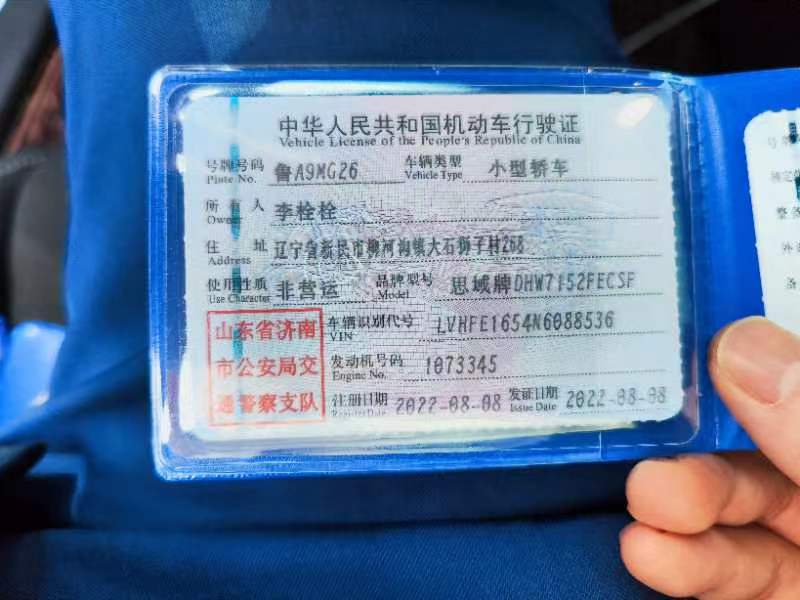 中华人民共和国机动车行驶证
Vehicle License of the People's Republic of China
号牌号码 鲁A9MG26 车辆类型 小型轿车
Plate No. Vehicle Type
所有人 李栓栓
Owner
住址 辽宁省新民市柳河沟镇大石狮子村268
Address
使用性质 非营运 品牌型号 思域牌DHW7152FECSF
Use Character Model
山东省济南
市公安局交
通警察支队
车辆识别代号 LVHFE1654N6088536
VIN
发动机号码 1073345
Engine No.
注册日期 2022-08-08 发证日期 2022-08-08
Register Date Issue Date